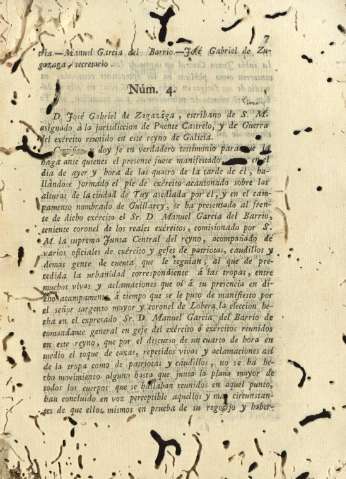 7
ria.—Manuel Garcia del Barrio.—José Gabriel de Zu-
gazaga, secretario.
Núm. 4.
D. José Gabriel de Zugazaga, escribano de S. M.
asignado á la jurisdiccion de Puente Castrelo, y de Guerra
del exército reunido en este reyno de Galicia.
Certifico, doy fe en verdadero testimonio para que la
haga ante quienes el presente fuese manifestado en el
dia de ayer y hora de las quatro de la tarde de él, ha-
llándose formado el pie de exército acantonado sobre las
alturas de la ciudad de Tuy asediada por él, y en el cam-
pamento nombrado de Guillarey, se ha presentado al fren-
te de dicho exército el Sr. D. Manuel Garcia del Barrio,
teniente coronel de los reales exércitos, comisionado por S.
M. la suprema Junta Central del reyno, acompañado de
varios oficiales de exército y gefes de patriotas, caudillos y
demas gente de cuenta que le seguian, al que pre-
cedida la urbanidad correspondiente á las tropas, entre
muchos vivas y aclamaciones que oí á su presencia en di-
cho acampamento á tiempo que se puto de manifiesto por
el señor sargento mayor y coronel de Lobera la eleccion he-
cha en el expresado Sr. D. Manuel Garcia del Barrio de
comandante general en gefe del exército ó exércitos reunidos
en este reyno, que por el discurso de un cuarto de hora en
medio el toque de caxas, repetidos vivas y aclamaciones así
de la tropa como de patriotas y caudillos, no se ha he-
cho movimiento alguno hasta que junta la plana mayor de
todos los cuerpos que se hallaban reunidos en aquel punto,
han concluido en voz perceptible aquellos y mas circunstan-
tes de que ellos mismos en prueba de su regocijo y haber-